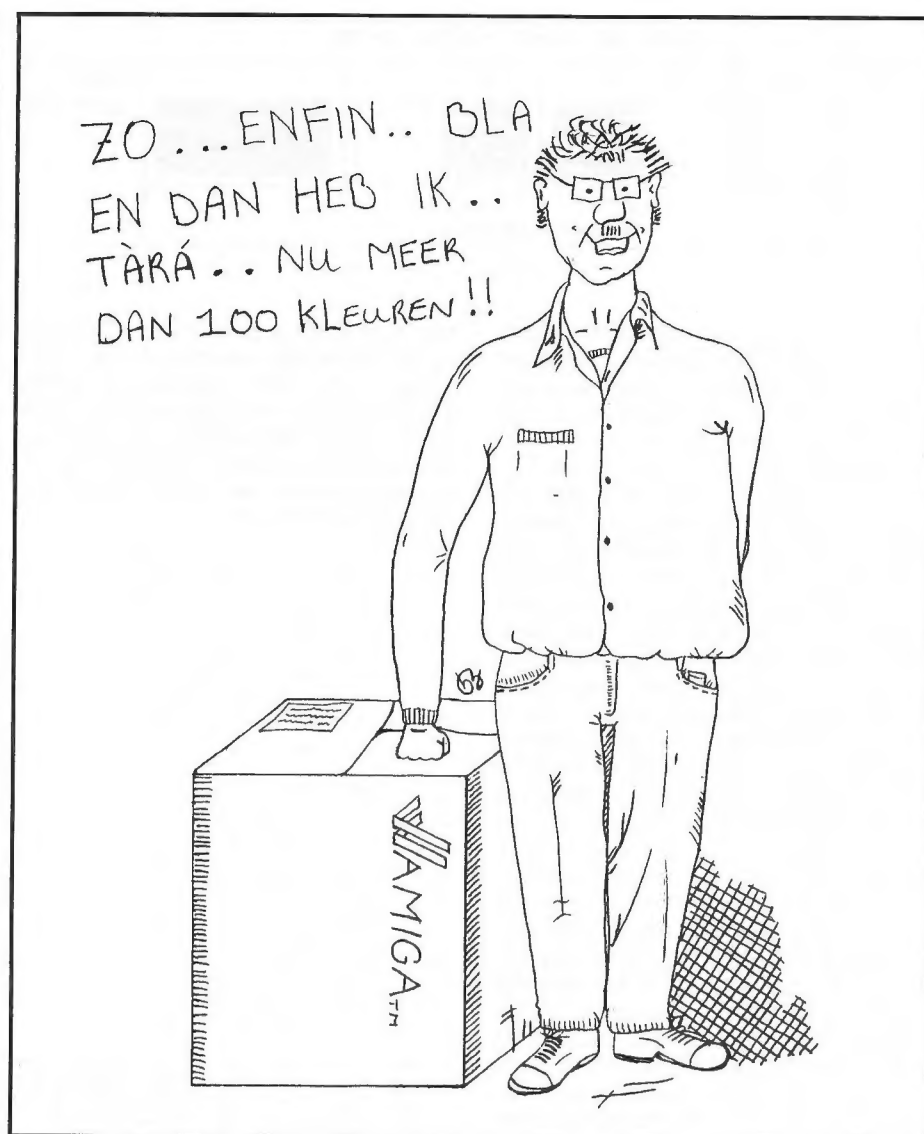 ZO...ENFIN.. BLA
EN DAN HEB IK..
TÀRÁ.. NU MEER
DAN 100 KLEUREN!!
AMIGA TM